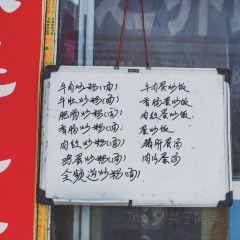 牛肉炒粉(面)
牛杂炒粉(面)
肥肠炒粉(面)
香肠炒粉(面)
肉丝炒粉(面)
鸡蛋炒粉(面)
全频道炒粉(面)
牛肉蛋炒饭
香肠蛋炒饭
肉丝蛋炒饭
蛋炒饭
猪肝蛋汤
肉片蛋汤
Trip
英子同学